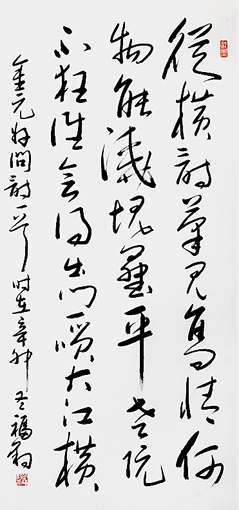 從橫詩筆見高情何
物能澆塊壘平老阮
不狂誰會得出門一笑大江橫
金元好問詩一首時在辛卯福